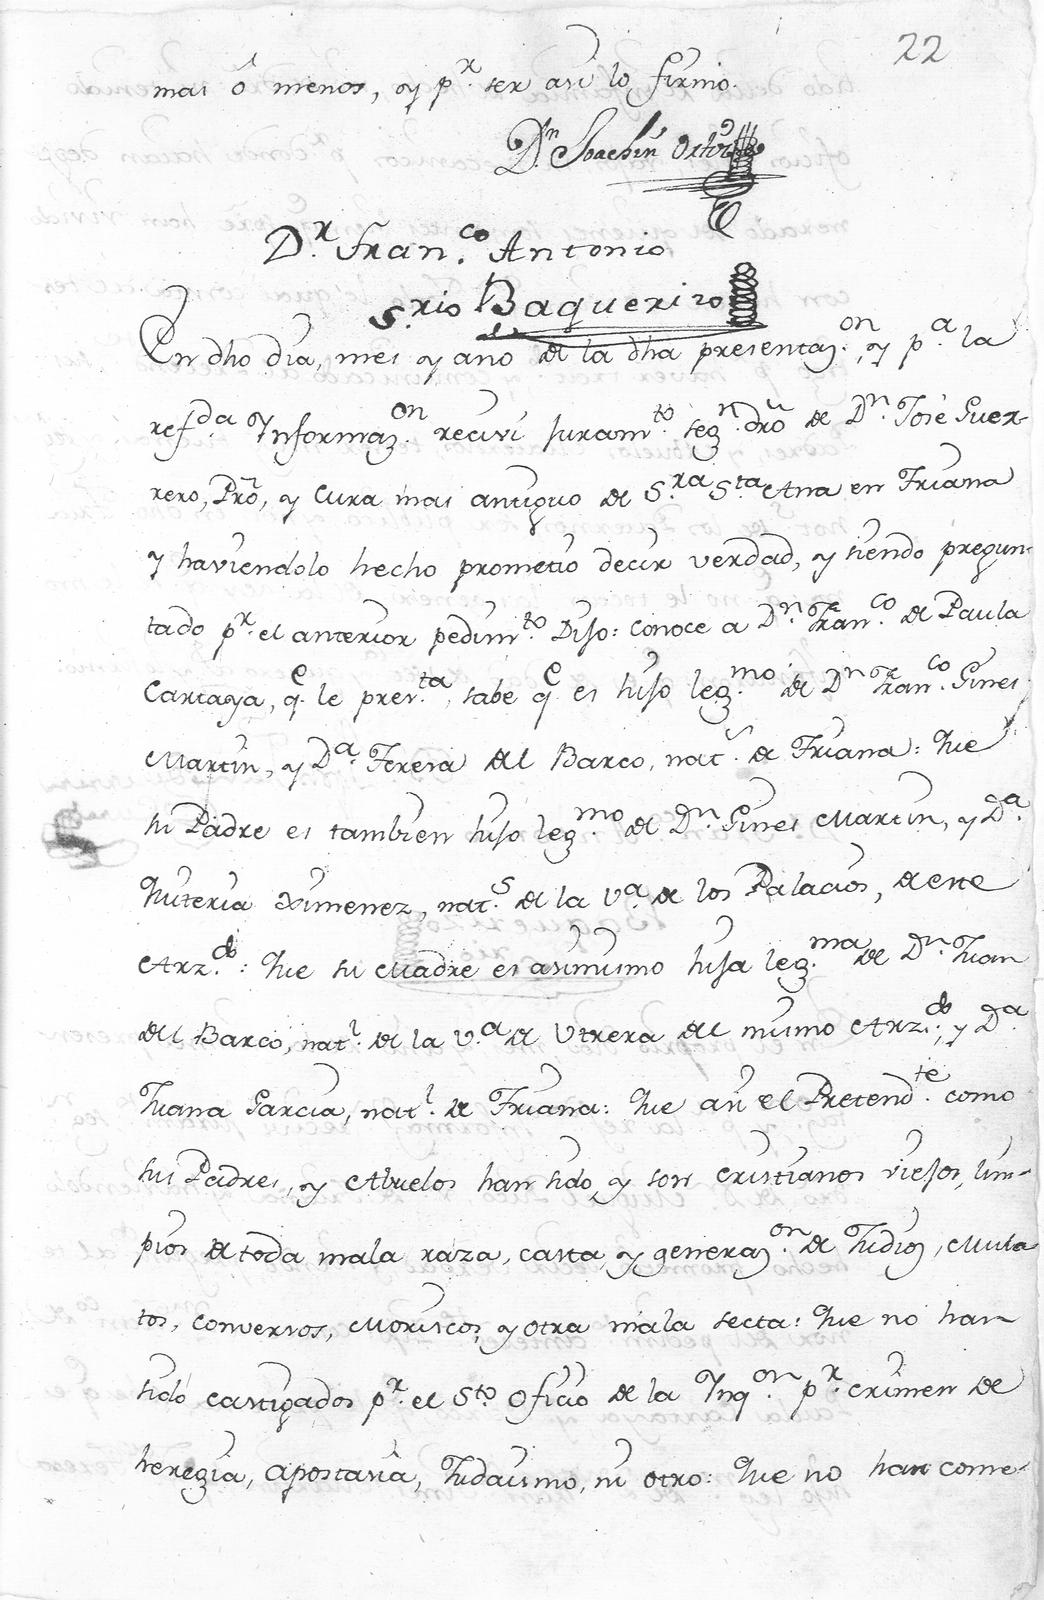 22
mas ô menos, y p.r ser asi lo firmo.
D.n Joachin Ortiz
D.r Fran.co Antonio
S.rio Baquerizo
En dho dia, mes y año de la dha presentaz.on, y p.a la
refda Informaz.on recivi juram.to seg.n dro de D.n José Guer-
rero, Pro, y Cura mas antiguo de S.ra S.ta Ana en Triana
y haviendolo hecho prometio decir verdad, y siendo pregun-
tado p.r el anterior pedim.to Dijo: conoce a D.n Fran.co de Paula
Cartaya, q.e le pres.ta, sabe q.e es hijo leg.mo de D.n Fran.co Gines
Martin, y D.a Teresa del Barco, nat.s de Triana: Que
su Padre es tambien hijo leg.mo de D.n Gines Martin, y D.a
Quiteria Ximenez, nat.s de la V.a de los Palacios, de este
Arz.do: Que su Madre es asimismo hija leg.ma de D.n Juan
del Barco, nat.l de la V.a de Utrera del mismo Arz.do, y D.a
Juana Garcia, nat.l de Triana: Que asi el Pretend.te como
sus Padres, y Abuelos han sido, y son cristianos viejos, lim-
pios de toda mala raza, casta, y generaz.on de Judios, Mula
tos, conversos, Moriscos, y otra mala secta: Que no han
sido castigados p.r el S.to Oficio de la Inq.on p.r crimen de
heregia, apostasia, Judaismo, ni otro: Que no han come-